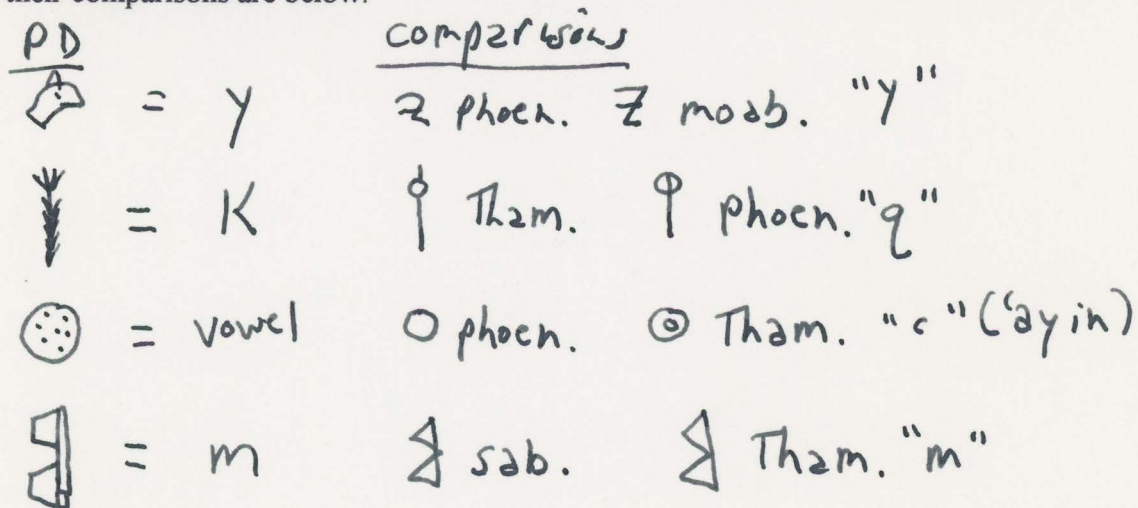 their comparisons are below:
PD comparisons
= y phoen. moab. "y"
= K Tham. phoen. "q"
= vowel phoen. Tham. "c" ('ayin)
= m sab. Tham. "m"